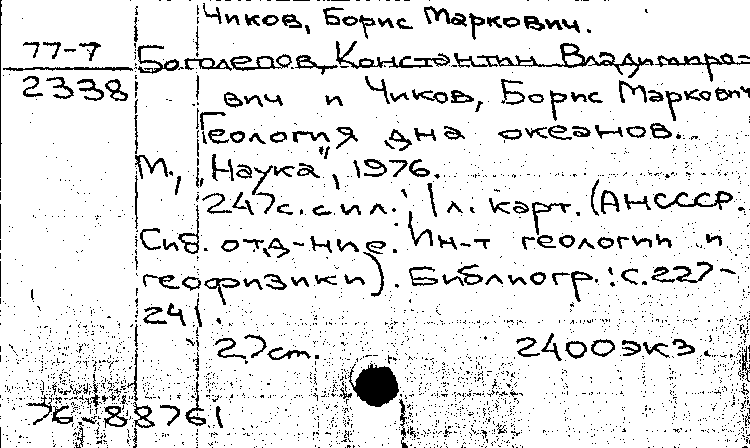 Чиков, Борис Маркович.
77-7
Боголепов, Константин Владимиро-
2338
вич и Чиков, Борис Маркович
Геология дна океанов.
М., „Наука“, 1976.
247с. с ил.; 1л. карт. (АНСССР.
Сиб. отд-ние. Ин-т геологии и
геофизики). Библиогр.: с. 227-
241.
27см. 2400экз.
76-88761